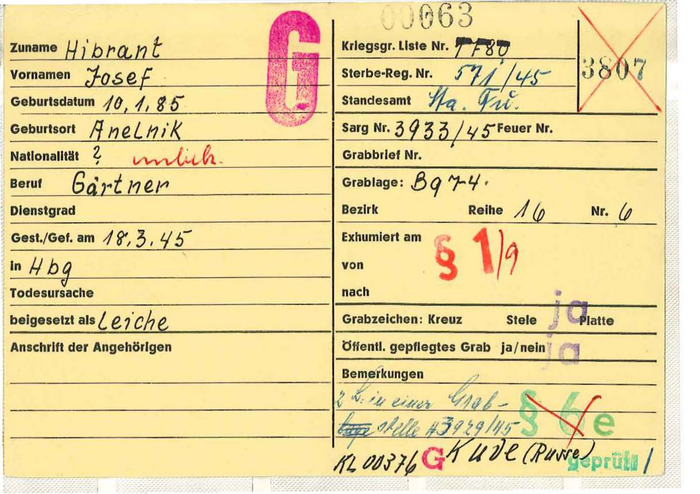 00063
G
Zuname Hibrant
Vornamen Josef
Geburtsdatum 10.1.85
Geburtsort Anelnik
Nationalität ? unbek.
Beruf Gärtner
Dienstgrad
Gest./Gef. am 18.3.45
in Hbg
Todesursache
beigesetzt als Leiche
Anschrift der Angehörigen
Kriegsgr. Liste Nr.
3807
Sterbe-Reg. Nr. 571/45
Standesamt
Sarg Nr. 3933/45 Feuer Nr.
Grabbrief Nr.
Grablage: Bq 74.
Bezirk Reihe 16 Nr. 6
Exhumiert am
§ 1/9
von
nach
ja
Grabzeichen: Kreuz Stele Platte
Öffentl. gepflegtes Grab ja/nein
ja
Bemerkungen
2 L. in einer Grab-
stelle # 3929/45
§ 6e
KL 00376 G Kuve (Russe)
geprüft